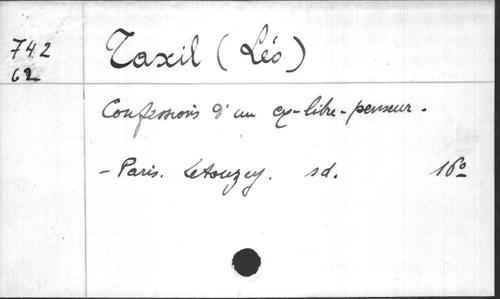 742
62
Taxil (Léo)
Confessions d'un ex-libre-penseur.
- Paris. Letouzey. sd. 16º